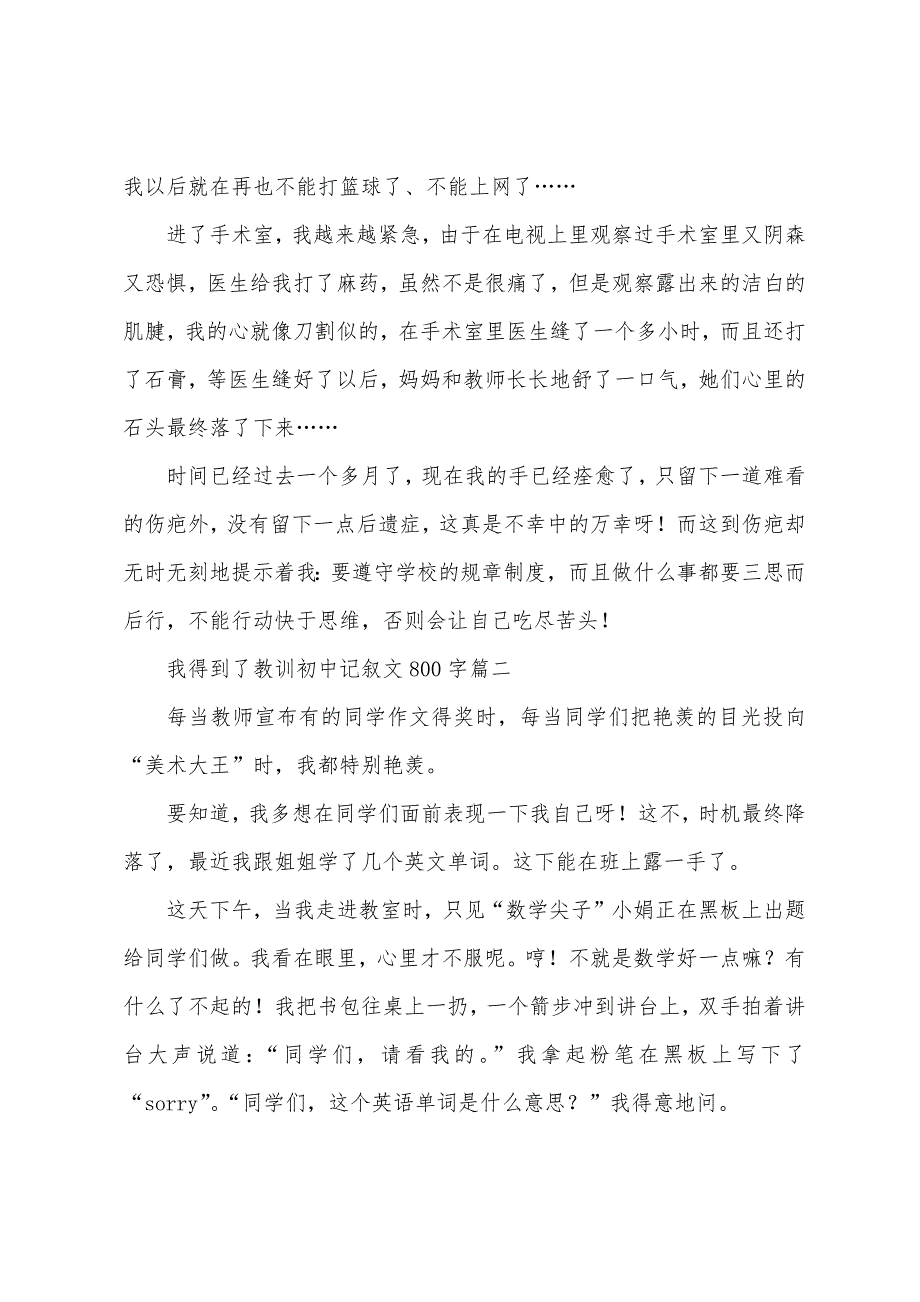 我以后就在再也不能打篮球了、不能上网了……
进了手术室，我越来越紧急，由于在电视上里观察过手术室里又阴森
又恐惧，医生给我打了麻药，虽然不是很痛了，但是观察露出来的洁白的
肌腱，我的心就像刀割似的，在手术室里医生缝了一个多小时，而且还打
了石膏，等医生缝好了以后，妈妈和教师长长地舒了一口气，她们心里的
石头最终落了下来……
时间已经过去一个多月了，现在我的手已经痊愈了，只留下一道难看
的伤疤外，没有留下一点后遗症，这真是不幸中的万幸呀！而这到伤疤却
无时无刻地提示着我：要遵守学校的规章制度，而且做什么事都要三思而
后行，不能行动快于思维，否则会让自己吃尽苦头！
我得到了教训初中记叙文 800 字篇二
每当教师宣布有的同学作文得奖时，每当同学们把艳羡的目光投向
“美术大王”时，我都特别艳羡。
要知道，我多想在同学们面前表现一下我自己呀！这不，时机最终降
落了，最近我跟姐姐学了几个英文单词。这下能在班上露一手了。
这天下午，当我走进教室时，只见“数学尖子”小娟正在黑板上出题
给同学们做。我看在眼里，心里才不服呢。哼！不就是数学好一点嘛？有
什么了不起的！我把书包往桌上一扔，一个箭步冲到讲台上，双手拍着讲
台大声说道：“同学们，请看我的。”我拿起粉笔在黑板上写下了
“sorry”。“同学们，这个英语单词是什么意思？”我得意地问。